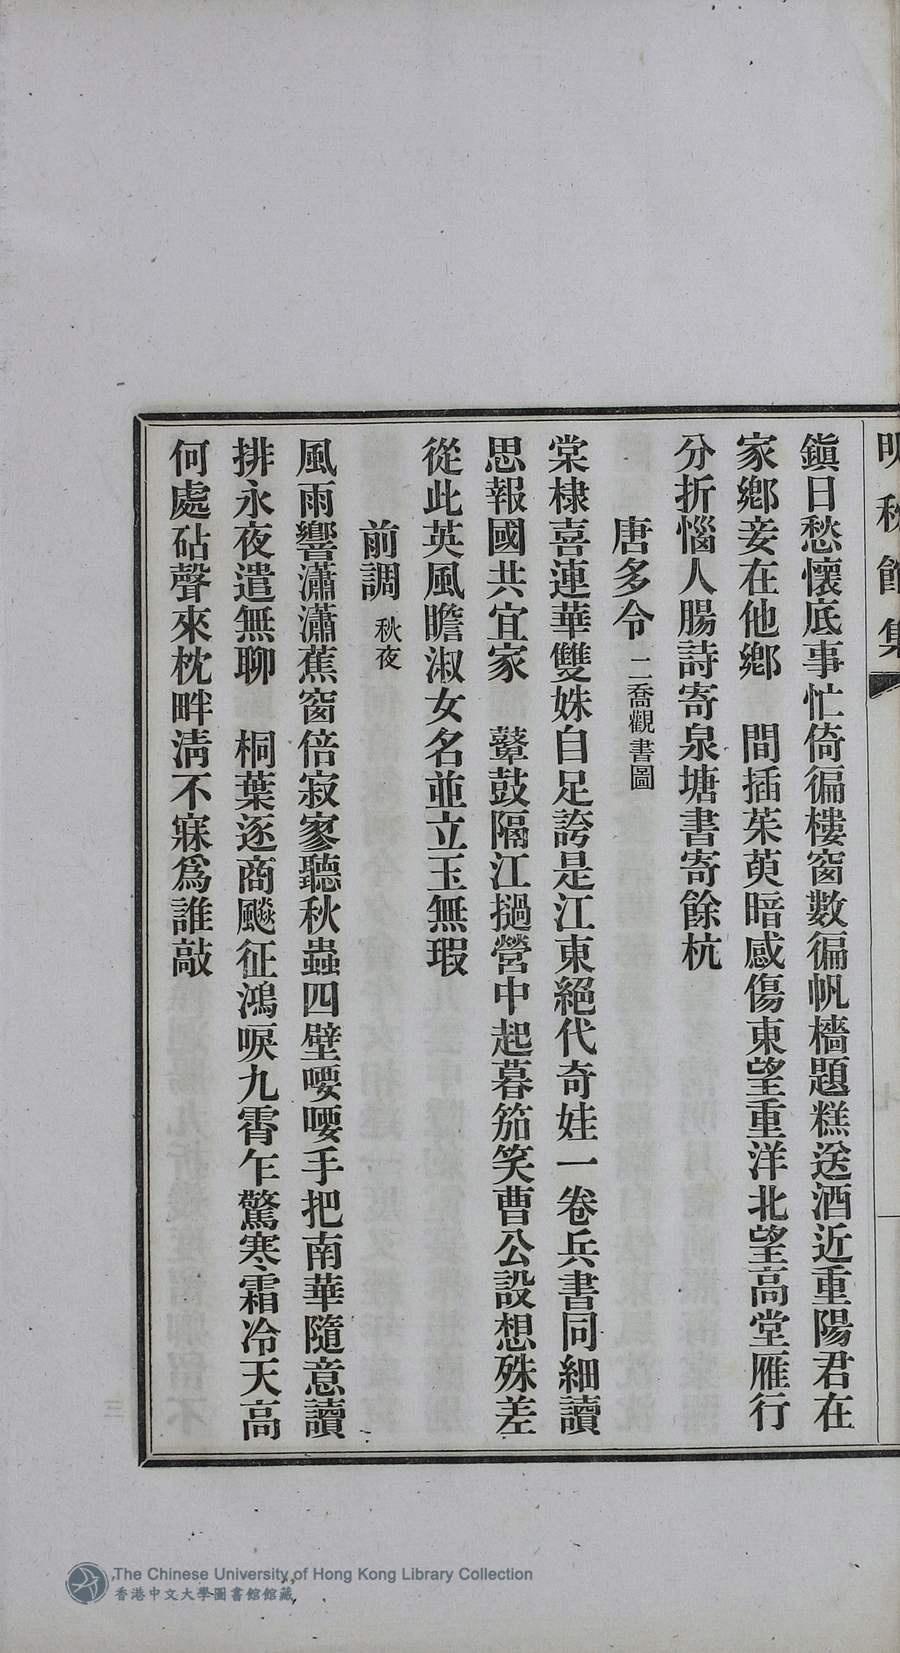 秋館集
鎭日愁懷底事忙倚徧樓窗數徧帆檣題糕送酒近重陽君在
家鄕妾在他鄕　間插茱萸暗感傷東望重洋北望高堂雁行
分折惱人腸詩寄泉塘書寄餘杭
唐多令 二喬觀書圖
棠棣喜連華雙姝自足誇是江東絕代奇娃一卷兵書同細讀
思報國共宜家　鼙鼓隔江撾營中起暮笳笑曹公設想殊差
從此英風瞻淑女名並立玉無瑕
前調 秋夜
風雨響瀟瀟蕉窗倍寂寥聽秋蟲四壁喓喓手把南華隨意讀
排永夜遣無聊　桐葉逐商飈征鴻唳九霄乍驚寒霜冷天高
何處砧聲來枕畔淸不寐爲誰敲
The Chinese University of Hong Kong Library Collection
香港中文大學圖書館館藏